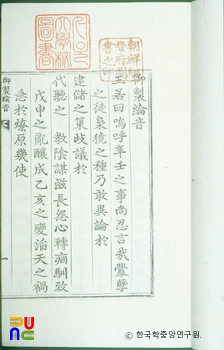 朝鮮總
督府圖
書之印
御製綸音
王若曰嗚呼辛壬之事尚忍言哉釁孽
之徒梟獍之種乃敢異論於
建儲之策歧議於
代聽之 教陰謀滋長怨心轉痼馴致
戊申之亂釀成乙亥之變滔天之禍
急於燎原幾使
御製綸音
© 한국학중앙연구원